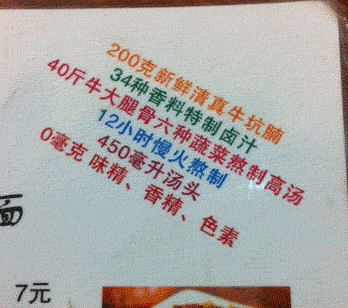 200克新鲜清真牛坑腩
34种香料特制卤汁
40斤牛大腿骨六种蔬菜熬制高汤
12小时慢火熬制
450毫升汤头
0毫克 味精、香精、色素
面
7元